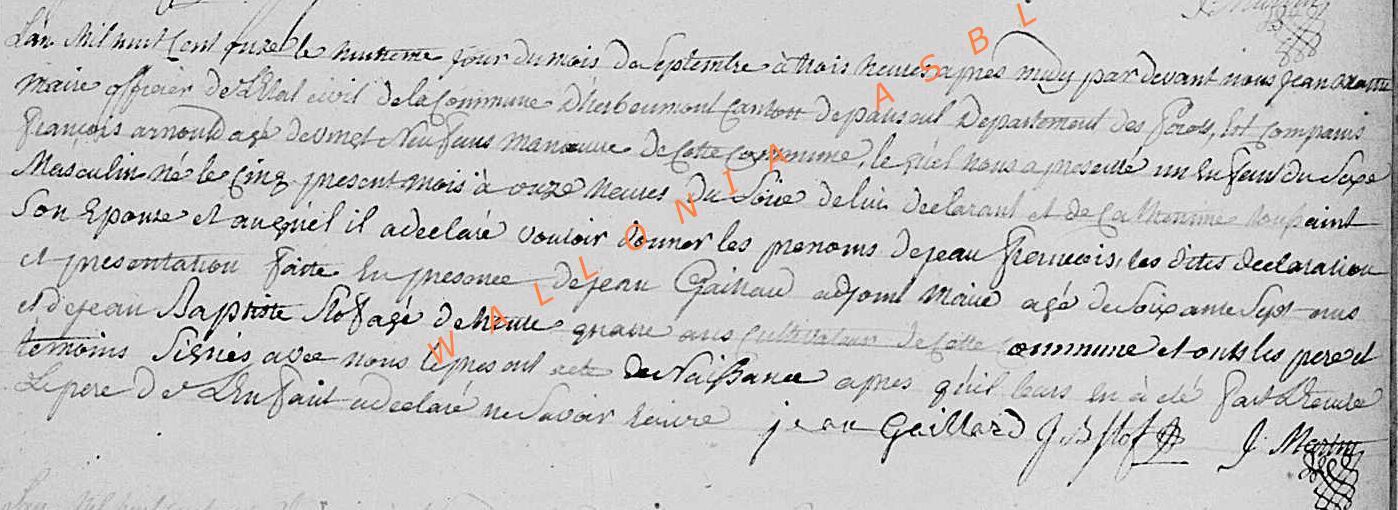 L'an Mil huit Cent onze le huitieme jour du mois de Septembre à trois heures après midy par devant nous jean
Maire officier de L'Etat civil de la Commune D'herbeumont Canton de paliseul Departement des forets, Est comparus
françois arnould agé de vingt Neuf ans manœuvre de Cette Commune, le quel nous a presenté un Enfant du Sexe
Masculin né le Cinq present mois à onze heures du Soire de lui declarant et de Catherinne toupaint
Son Epouse et auquel il a declaré vouloir donner les prenoms de jean françois, les dites declaration
et presentation faitte En presence de jean Gaillard adjoint Maire agé de Soixante Sept ans
et de jean Baptiste Stof agé de trente quatre ans Cultivateur de Cette Commune et onts les pere et
temoins Signés avec nous le present acte de Naissance apres qu'il leurs en à été fait
Le pere de L'Enfant a declaré ne Savoir Ecrire jean Gaillard J B Stof J. Marin
WALLONIA ASBL